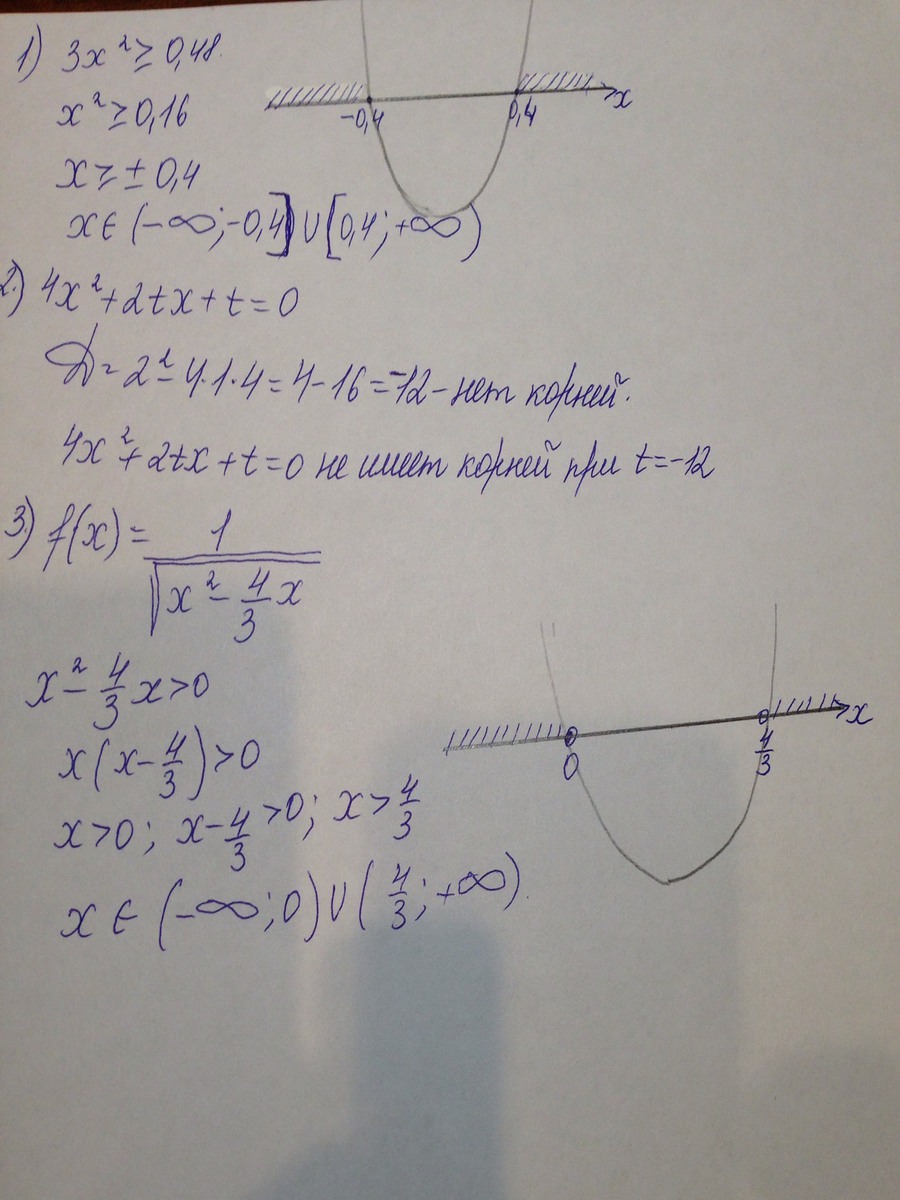 1) 3x² ≥ 0,48.
x² ≥ 0,16
x ≥ ± 0,4
x ∈ (-∞; -0,4] ∪ [0,4; +∞)
-0,4 0,4 x
2.) 4x² + 2tx + t = 0
D = 2² - 4·1·4 = 4 - 16 = -12 - нет корней.
4x² + 2tx + t = 0 не имеет корней при t = -12
3.) f(x) = 1 / √(x² - 4/3 x)
x² - 4/3 x > 0
x(x - 4/3) > 0
x > 0; x - 4/3 > 0; x > 4/3
x ∈ (-∞; 0) ∪ (4/3; +∞).
0 4/3 x